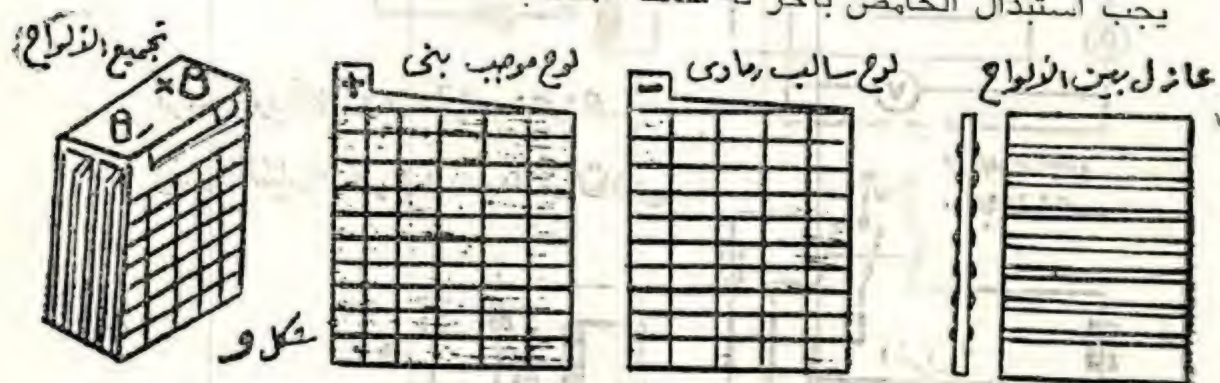 يجب استبدال الحامض بآخر
عازل بين الألواح
لوح سالب رمادى
لوح موجب بنى
تجميع الألواح
-
+
- +
شكل و